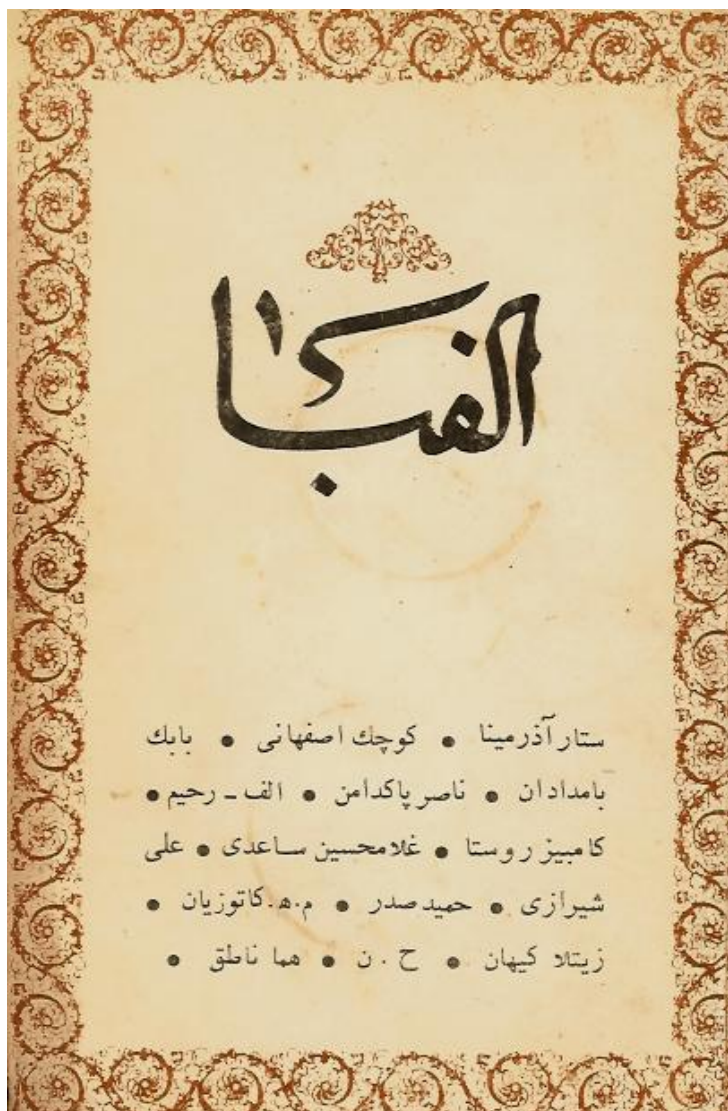 الفبا
ستار آذرمینا • کوچك اصفهانی • بابك
بامدادان • ناصر پاکدامن • الف ـ رحیم •
کامبیز روستا • غلامحسین ساعدی • علی
شیرازی • حمید صدر • م.ه. کاتوزیان •
زیتلا کیهان • ح . ن • هما ناطق •